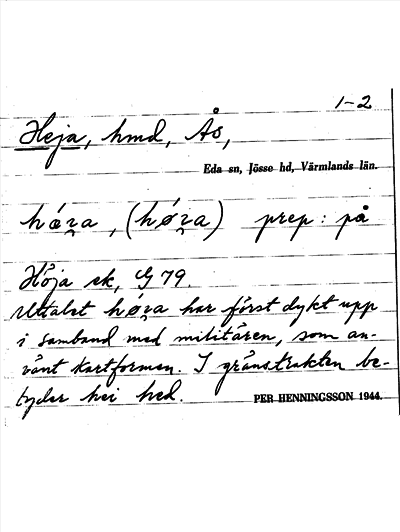 1-2
Heja, hmd, Ås,
Eda sn, Jösse hd, Värmlands län.
prep: på
Höja ek, G 79.
Uttalet har först dykt upp
i samband med militären, som an-
vänt kartformen. I gränstrakten be-
tyder hei hed.
PER HENNINGSSON 1944.